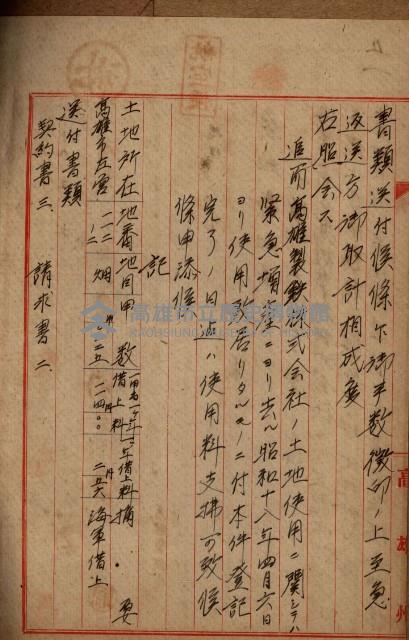 書類送付候條乍御手数徴印ノ上至急
返送方御取計相成度
右照会ス
追而高雄製鉄株式会社ノ土地使用ニ関シテハ
緊急増産ニヨリ去ル昭和十八年四月六日
ヨリ使用致居リタルモノニ付本件登記
完了ノ日迄ハ使用料支拂可致候
條申添候
記
土地所在 地番 地目 甲数 借上料 一年借上料 摘要
高雄市左営 一二二 畑 海軍借上
送付書類
契約書三、請求書二、
高雄州
高雄市立歴史博物館
KAOHSIUNG MUSEUM OF HISTORY